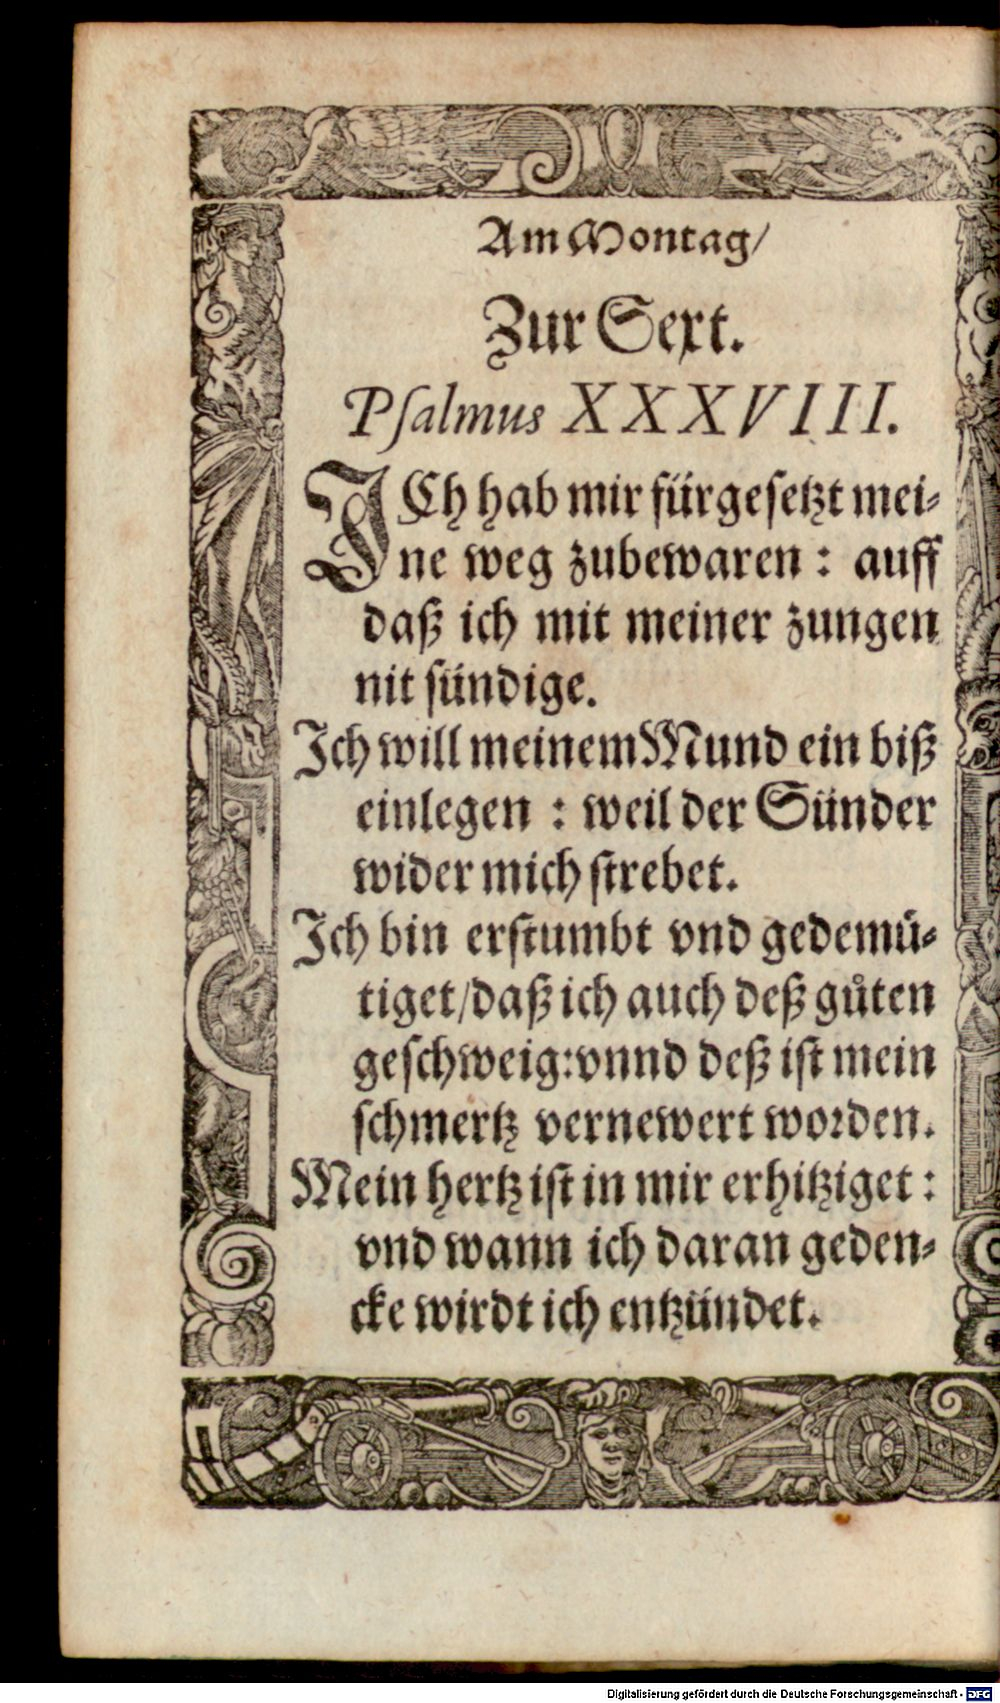 Am Montag/
Zur Sext.
Psalmus XXXVIII.
ICh hab mir fürgesetzt mei-
ne weg zubewaren : auff
daß ich mit meiner zungen
nit sündige.
Ich will meinem Mund ein biß
einlegen : weil der Sünder
wider mich strebet.
Ich bin erstumbt vnd gedemuͤ-
tiget/daß ich auch deß guͦten
geschweig:vnnd deß ist mein
schmertz vernewert worden.
Mein hertz ist in mir erhitziget :
vnd wann ich daran geden-
cke wirdt ich entzündet.
Digitalisierung gefördert durch die Deutsche Forschungsgemeinschaft - DFG